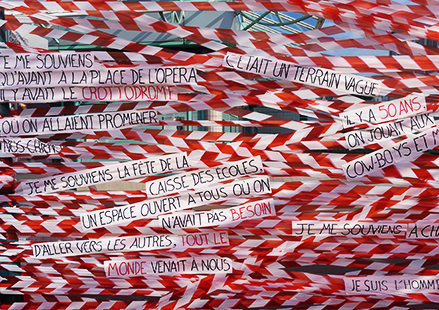 JE ME SOUVIENS
QU'AVANT A LA PLACE DE L'OPERA
IL Y AVAIT LE CROTTODROME
OU ON ALLAIENT PROMENER
NOS CHIENS
C'ETAIT UN TERRAIN VAGUE
IL Y A 50 ANS,
ON JOUAIT AUX
COWBOYS ET
JE ME SOUVIENS LA FÊTE DE LA
CAISSE DES ÉCOLES,
UN ESPACE OUVERT À TOUS QU'ON
N'AVAIT PAS BESOIN
D'ALLER VERS LES AUTRES, TOUT LE
MONDE VENAIT À NOUS
JE ME SOUVIENS A
JE SUIS L'HOMME